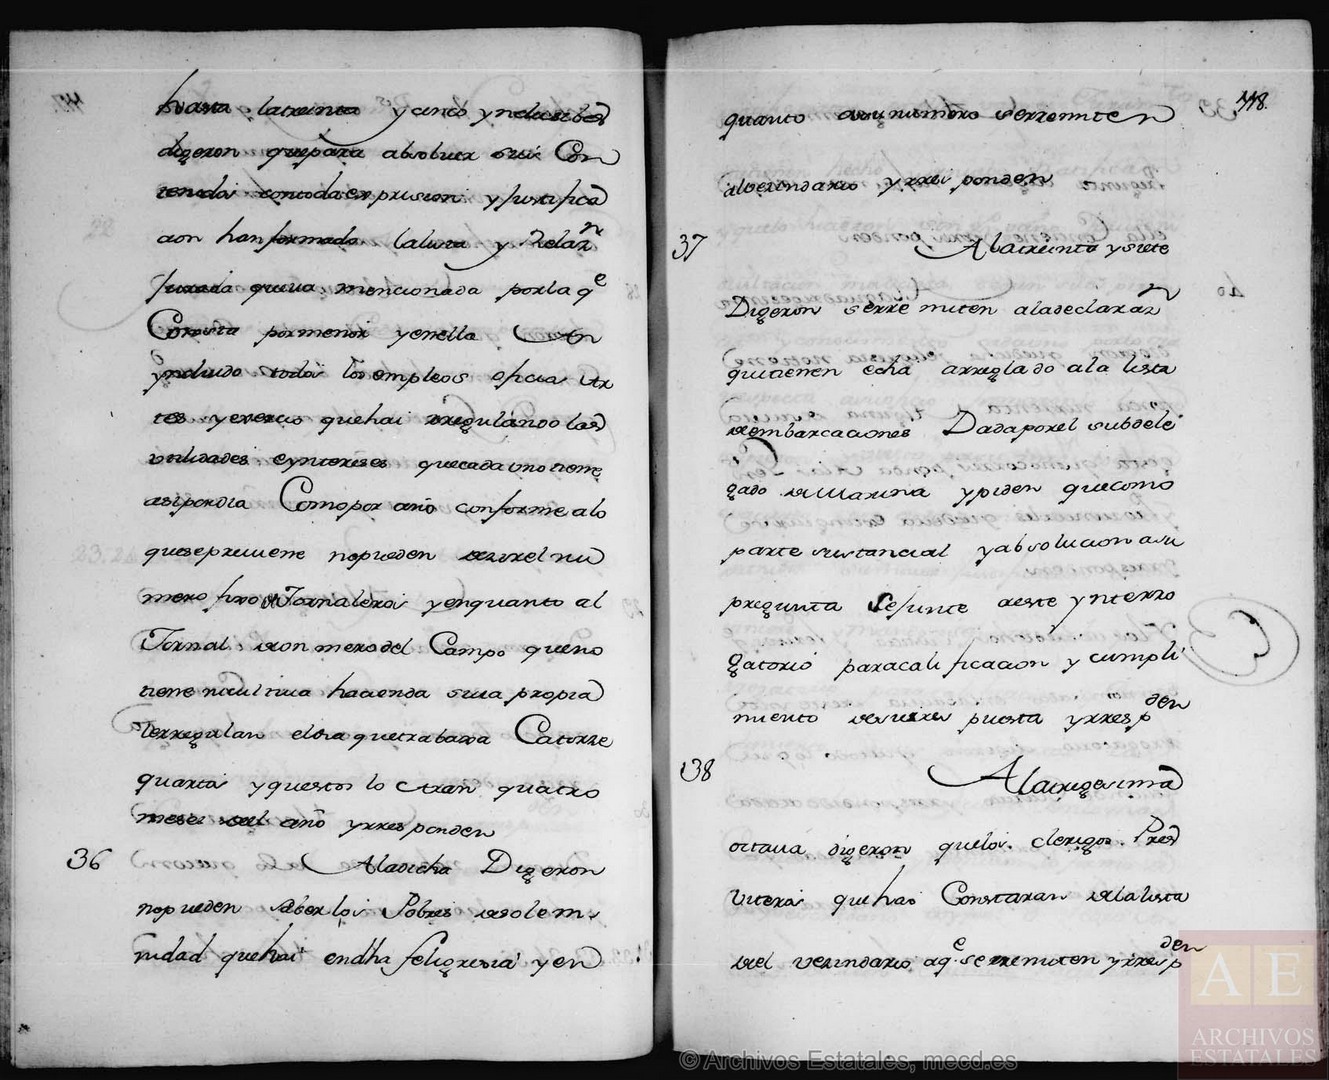 hasta la treinta y cinco ynclusibe
digeron que para absolver sus Con
tenidos con toda expression y justifica
cion han formado la lista y Relazn
jurada que va mencionada por la qe
Consta por menor y en ella
yncluido todos los empleos oficias Ar
tes y exercio que hai rregulando las
utilidades e yntereses que cada uno tiene
asi por dia Como por año conforme a lo
que se previene no pueden dezir el nu
mero fixo de Jornaleros y en quanto al
Jornal de on mero del Campo que no
tiene ni cultiva hacienda suia propia
le rregulan el dia que trabaxa Catorze
quartos y que estos lo eran quatro
meses del año y rresponden
36 A la dicha Digeron
no pueden saber los Pobres de solem
nidad que hai en dha feligresia y en
118.
quanto a su numero se rremiten
al vecindario y rresponden
37 A la treinta y siete
Digeron se rremiten a la declarazn
que tienen echa arreglado a la lista
de embarcaciones Dada por el subdele
gado de Marina y piden que como
parte sustancial y absolucion a su
pregunta Se junte a este ynterro
gatorio para calificacion y cumpli
miento de su rrespuesta y rrespden
38 A la trigesima
octava digeron que los clerigos Pres
viteros que hai Constaran de la lista
del vecindario a qe se rremiten y rrespden
© Archivos Estatales, mecd.es
AE
ARCHIVOS
ESTATALES